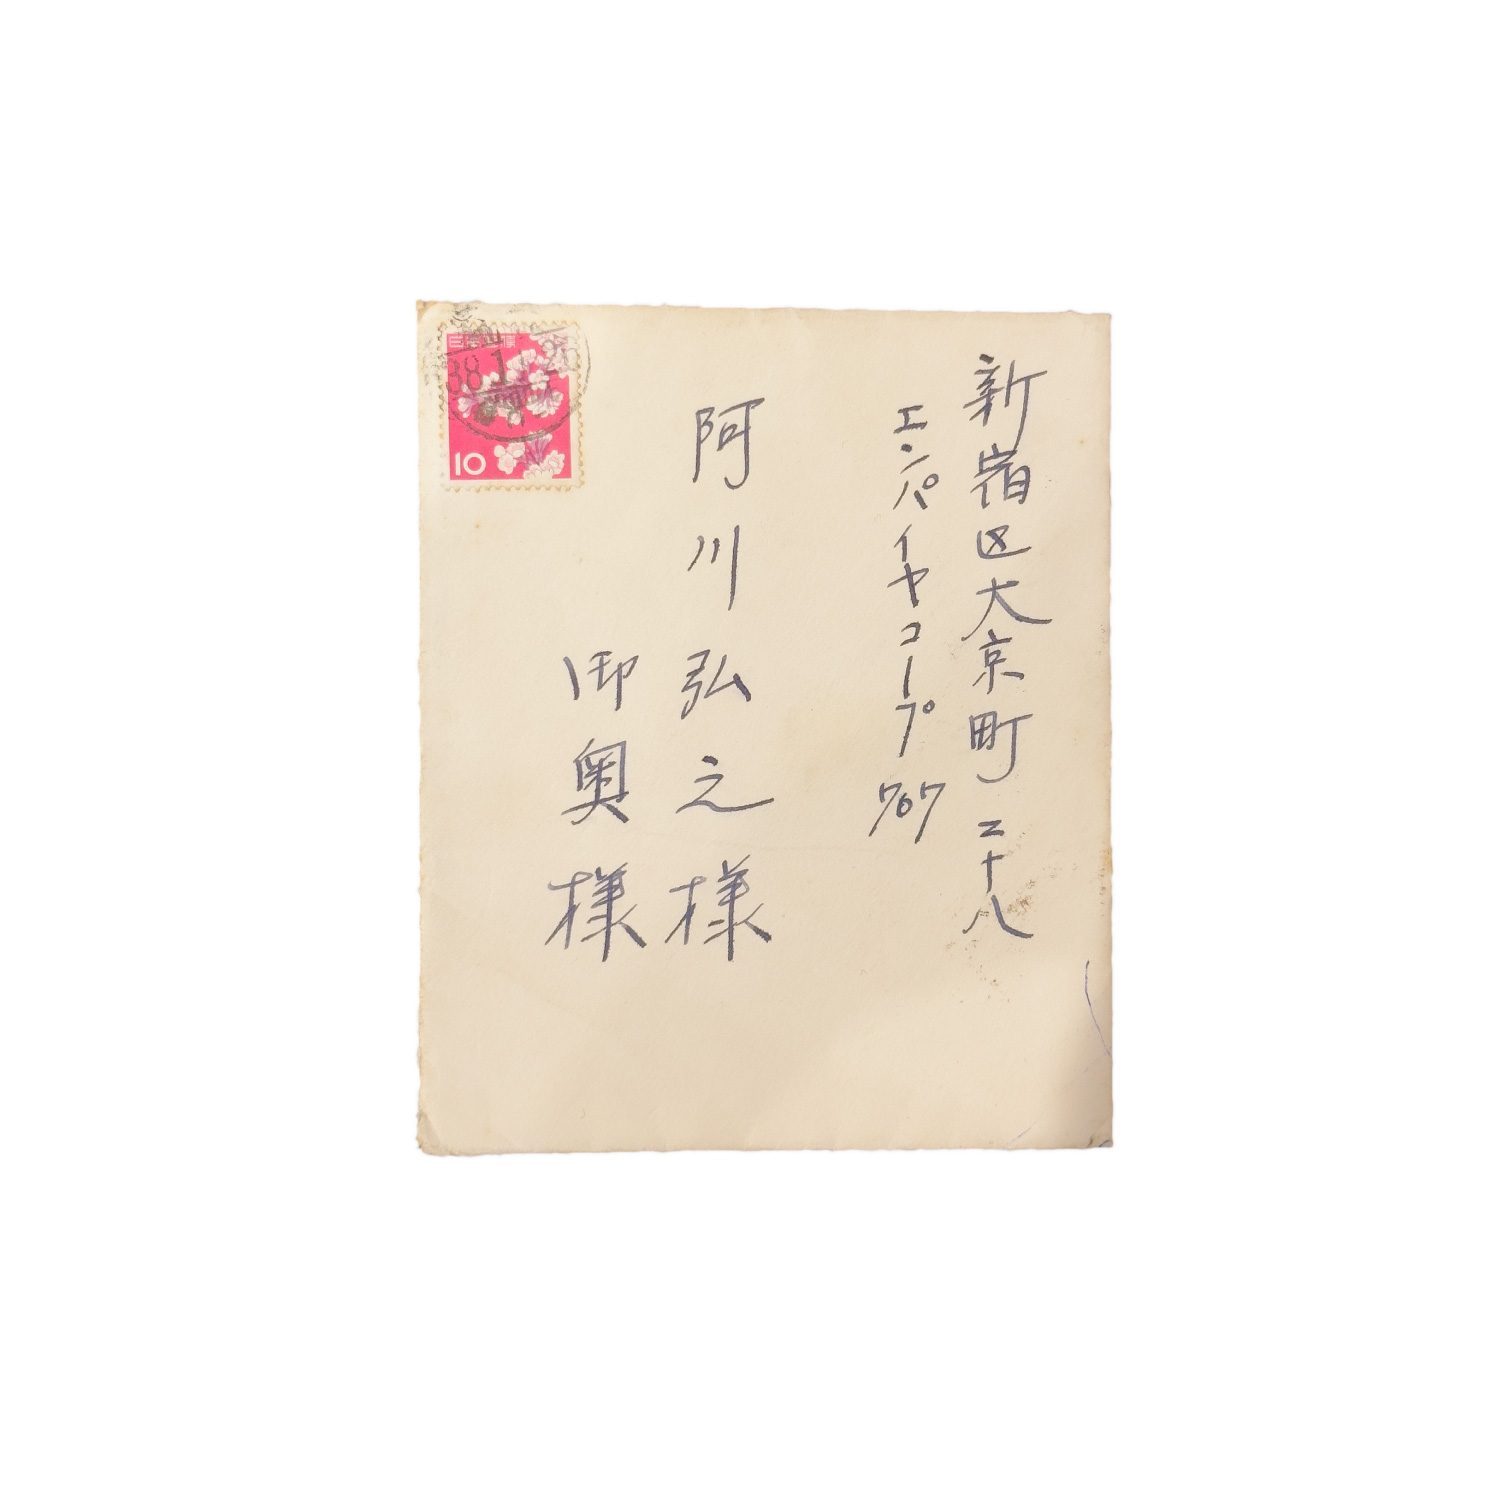 新宿区大京町二十八
エンパイヤコープ
707
阿川弘之様
御奥様
日本郵便
10
38.1